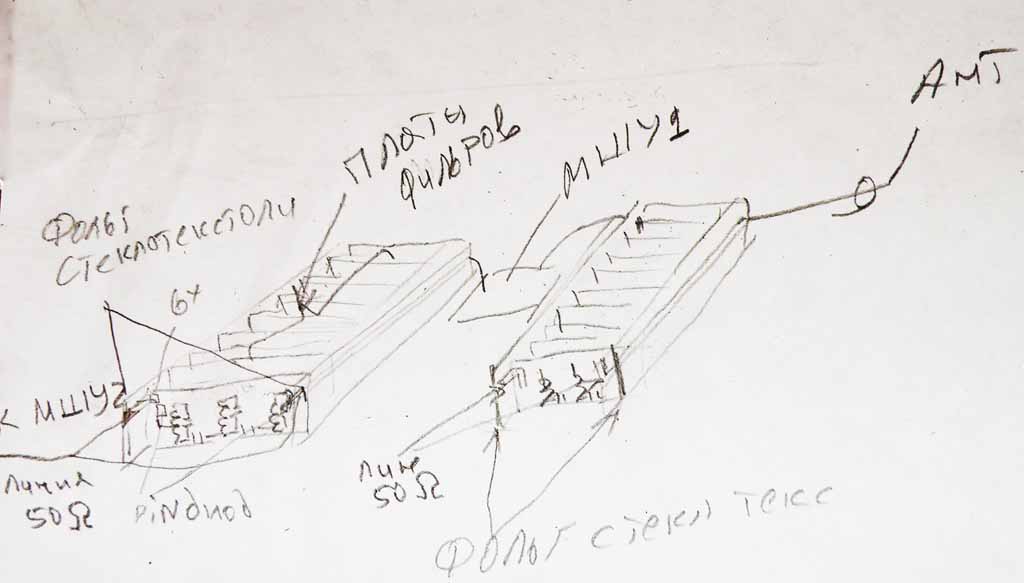 АМТ
ПЛАТЫ
ФИЛЬРОВ
МШУ1
ФОЛЬГ
СТЕКЛОТЕКСТОЛИ
6х
К МШУ2
линия
50Ω
PiNdиod
лин
50Ω
ФОЛЬГ СТЕКЛ ТЕКС